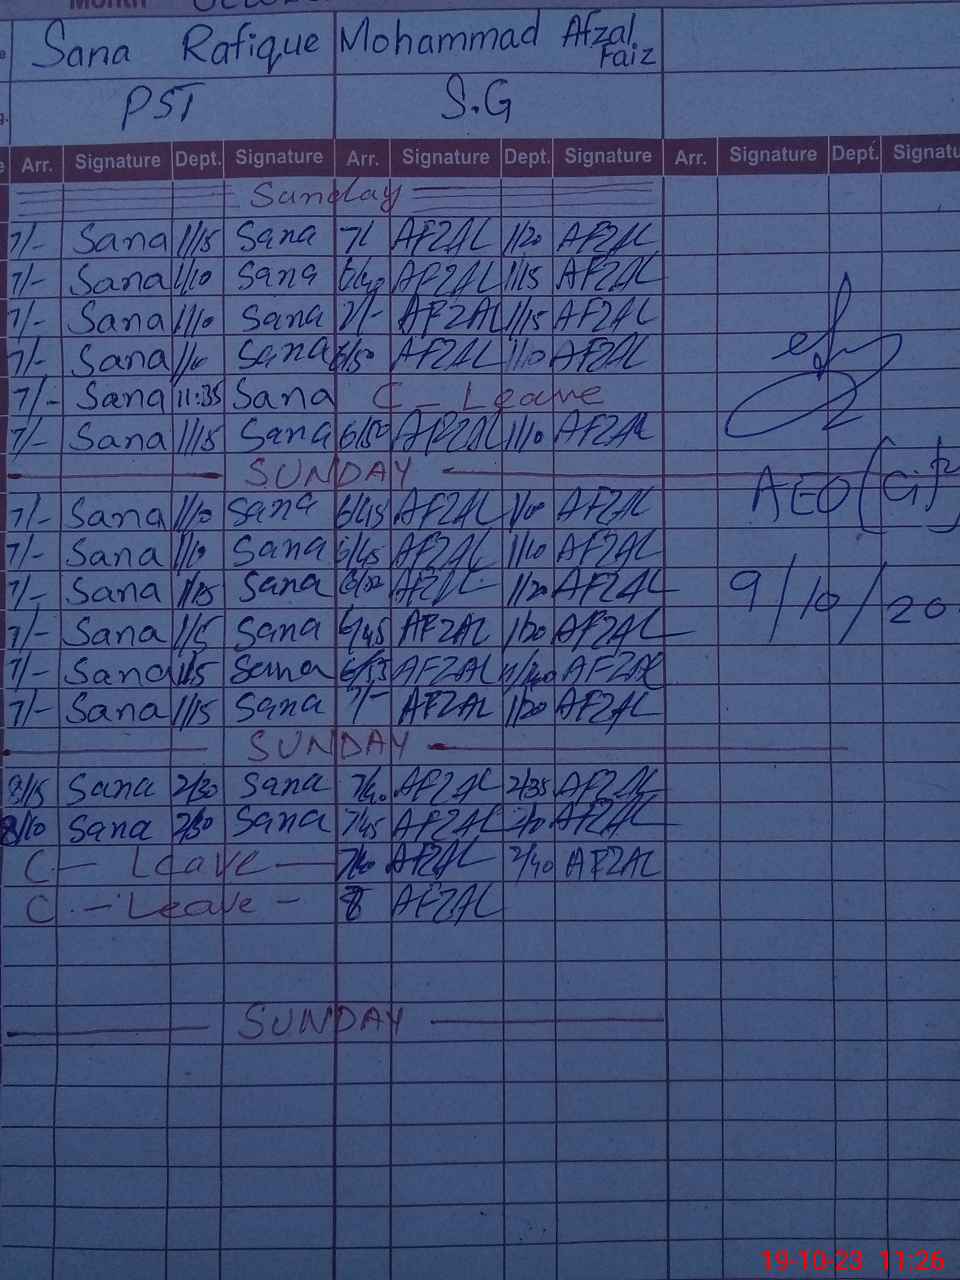 Month
Sana Rafique Mohammad Afzal Faiz
PST S.G
Arr. Signature Dept. Signature Arr. Signature Dept. Signature Arr. Signature Dept. Signatu
Sunday
7/- Sana 1/15 Sana 7/ AFZAL 1/20 AFZAL
7/- Sana 1/10 Sana 6/40 AFZAL 1/15 AFZAL
7/- Sana 1/10 Sana 7/- AFZAL 1/15 AFZAL
7/- Sana 1/10 Sana 6/50 AFZAL 1/10 AFZAL
7/- Sana 11:35 Sana C - Leave
7/- Sana 1/15 Sana 6/50 AFZAL 1/10 AFZAL
SUNDAY
AEO
7/- Sana 1/10 Sana 6/45 AFZAL AFZAL
7/- Sana 1/10 Sana 6/45 AFZAL 1/10 AFZAL
7/- Sana 1/15 Sana AFZAL 1/20 AFZAL 9/10/20
7/- Sana 1/15 Sana 6/45 AFZAL 1/20 AFZAL
7/- Sana 1/15 Sana 6/55 AFZAL AFZAL
7/- Sana 1/15 Sana 7/- AFZAL 1/20 AFZAL
SUNDAY
8/15 Sana 2/30 Sana 7/40 AFZAL 2/35 AFZAL
8/10 Sana 2/30 Sana 7/45 AFZAL AFZAL
C - Leave - 7/40 AFZAL 2/40 AFZAL
C - Leave - 8 AFZAL
SUNDAY
19-10-23 11:26